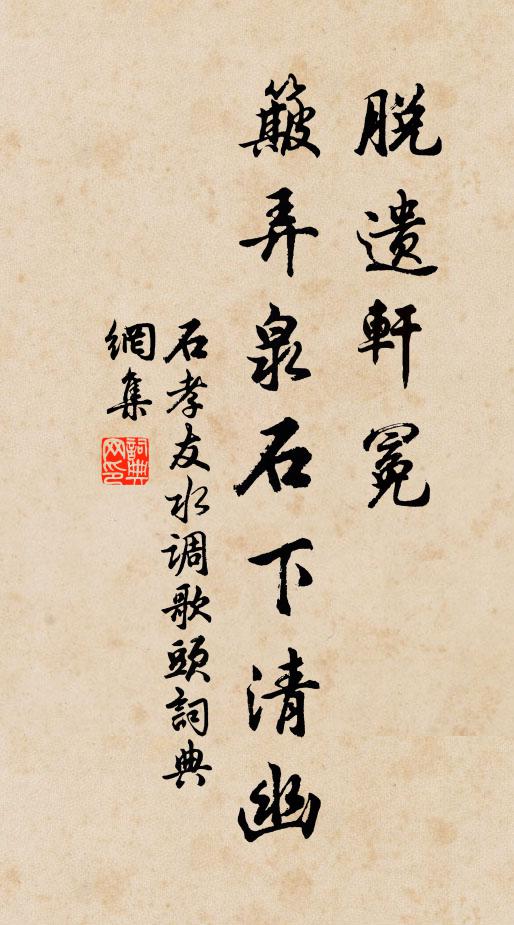 脱遺軒冕
簸弄泉石下清幽
石孝友水调歌頭詞典
網集
詞典
网印